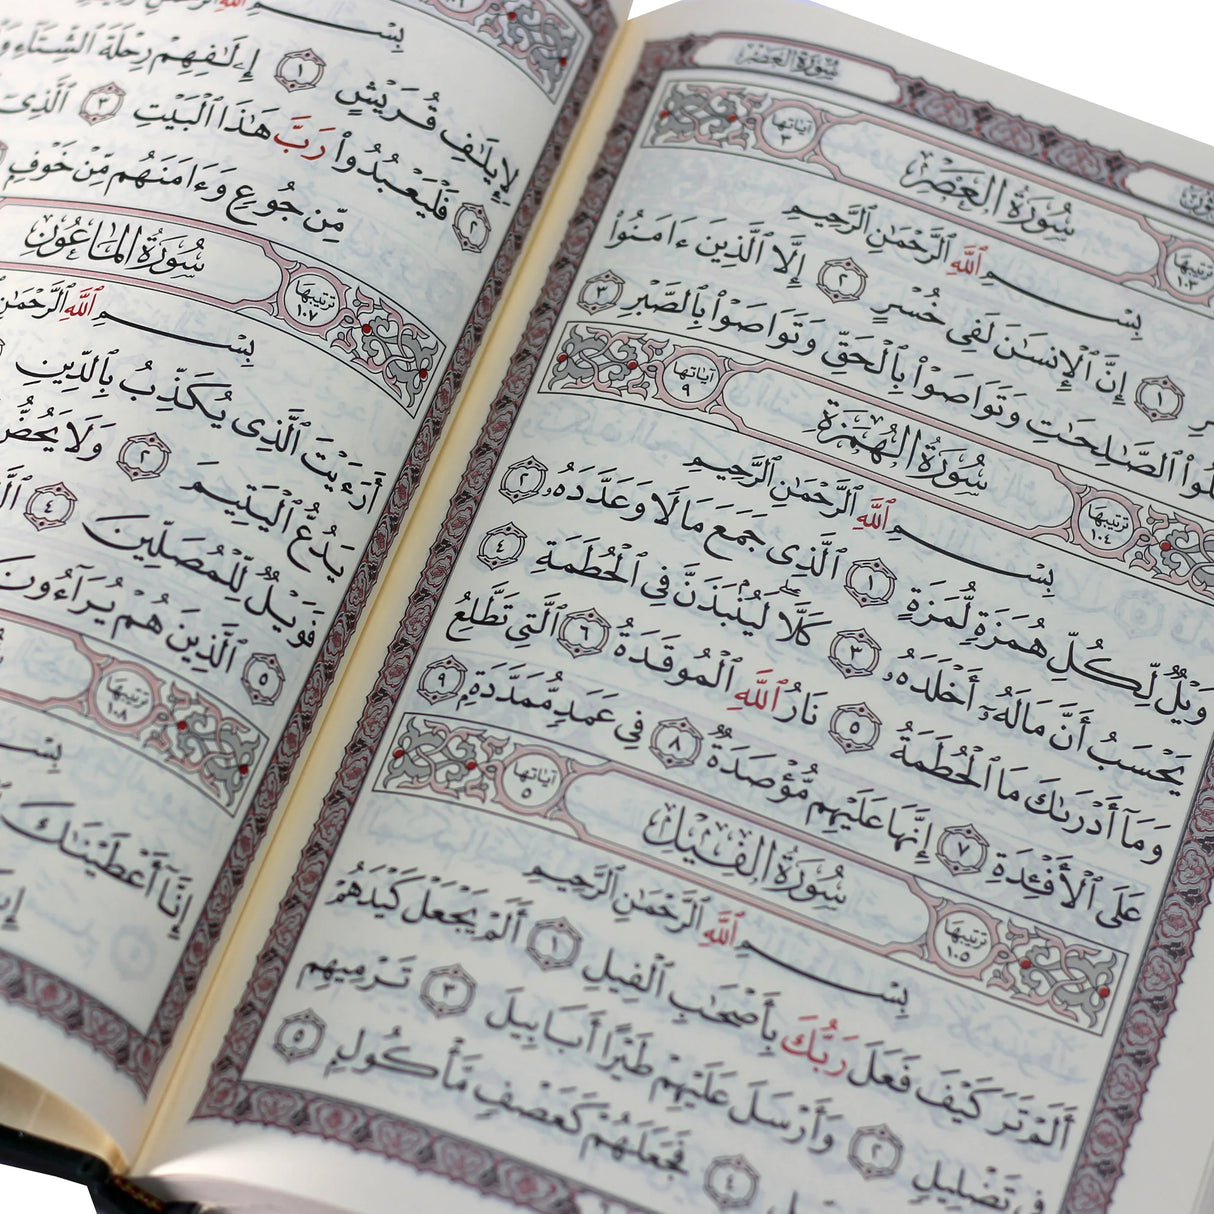 سُورَةُ العَصْرِ
آيَاتُهَا ٣
سُورَةُ العَصْرِ
تَرْتِيبُهَا ١٠٣
بِسْمِ ٱللَّهِ ٱلرَّحْمَٰنِ ٱلرَّحِيمِ
١ إِنَّ ٱلْإِنسَٰنَ لَفِي خُسْرٍ ٢ إِلَّا ٱلَّذِينَ ءَامَنُوا۟
ٱلصَّٰلِحَٰتِ وَتَوَاصَوْا۟ بِٱلْحَقِّ وَتَوَاصَوْا۟ بِٱلصَّبْرِ ٣
آيَاتُهَا ٩
سُورَةُ الهُمَزَةِ
تَرْتِيبُهَا ١٠٤
بِسْمِ ٱللَّهِ ٱلرَّحْمَٰنِ ٱلرَّحِيمِ
وَيْلٌ لِّكُلِّ هُمَزَةٍ لُّمَزَةٍ ١ ٱلَّذِى جَمَعَ مَالًا وَعَدَّدَهُۥ ٢
يَحْسَبُ أَنَّ مَالَهُۥٓ أَخْلَدَهُۥ ٣ كَلَّا ۖ لَيُنۢبَذَنَّ فِى ٱلْحُطَمَةِ ٤
وَمَآ أَدْرَىٰكَ مَا ٱلْحُطَمَةُ ٥ نَارُ ٱللَّهِ ٱلْمُوقَدَةُ ٦ ٱلَّتِى تَطَّلِعُ
عَلَى ٱلْأَفْـِٔدَةِ ٧ إِنَّهَا عَلَيْهِم مُّؤْصَدَةٌ ٨ فِى عَمَدٍ مُّمَدَّدَةٍ ٩
آيَاتُهَا ٥
سُورَةُ الفِيلِ
تَرْتِيبُهَا ١٠٥
بِسْمِ ٱللَّهِ ٱلرَّحْمَٰنِ ٱلرَّحِيمِ
أَلَمْ تَرَ كَيْفَ فَعَلَ رَبُّكَ بِأَصْحَٰبِ ٱلْفِيلِ ١ أَلَمْ يَجْعَلْ كَيْدَهُمْ
فِى تَضْلِيلٍ ٢ وَأَرْسَلَ عَلَيْهِمْ طَيْرًا أَبَابِيلَ ٣ تَرْمِيهِم
٤ فَجَعَلَهُمْ كَعَصْفٍ مَّأْكُولٍ ٥
بِسْمِ ٱللَّهِ
لِإِيلَٰفِ قُرَيْشٍ ١ إِۦلَٰفِهِمْ رِحْلَةَ ٱلشِّتَآءِ
٢ فَلْيَعْبُدُوا۟ رَبَّ هَٰذَا ٱلْبَيْتِ ٣ ٱلَّذِىٓ
مِّن جُوعٍ وَءَامَنَهُم مِّنْ خَوْفٍ
تَرْتِيبُهَا ١٠٧
سُورَةُ المَاعُونِ
بِسْمِ ٱللَّهِ ٱلرَّحْمَٰنِ
أَرَءَيْتَ ٱلَّذِى يُكَذِّبُ بِٱلدِّينِ
يَدُعُّ ٱلْيَتِيمَ ٢ وَلَا يَحُضُّ
فَوَيْلٌ لِّلْمُصَلِّينَ ٤
٥ ٱلَّذِينَ هُمْ يُرَآءُونَ
تَرْتِيبُهَا ١٠٨
بِسْمِ
إِنَّآ أَعْطَيْنَٰكَ